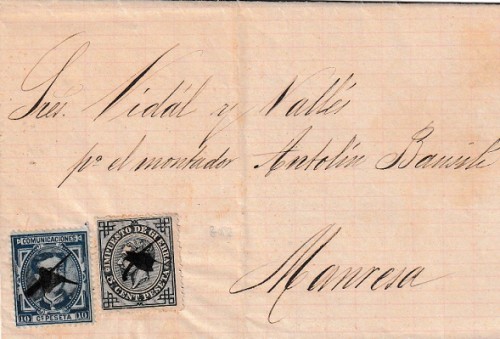 Sres. Vidál y Vallés
pº el montador Antolin
Manresa
COMUNICACIONES
10 Cs PESETA 10
IMPUESTO DE GUERRA
5 CENT. PESETA 5